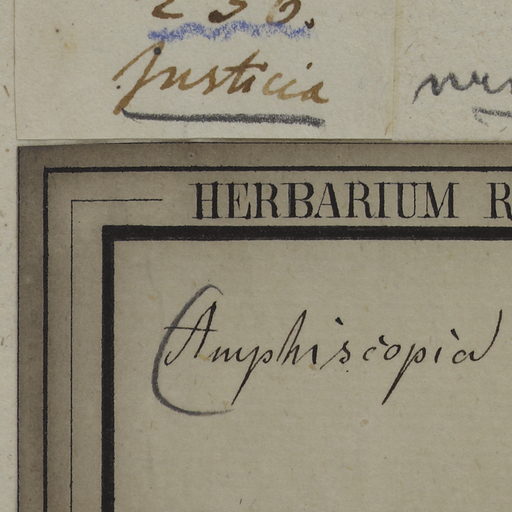 236.
Justicia
HERBARIUM R
Amphiscopia